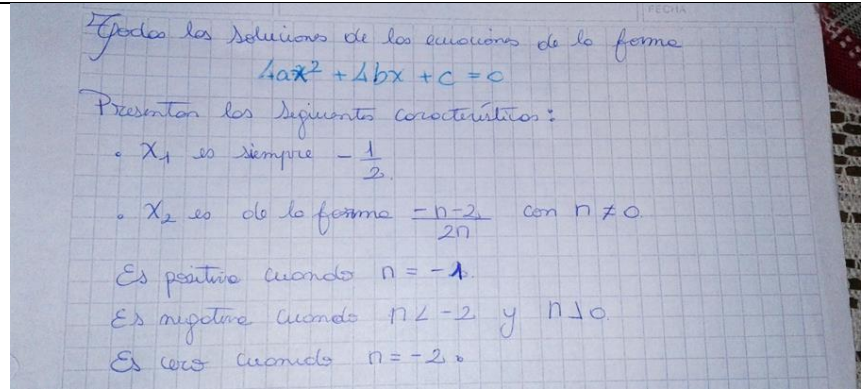 FECHA
Todas las soluciones de las ecuaciones de la forma
4ax² + 4bx + c = 0
Presentan las siguientes características:
• X₁ es siempre - 1/2.
• X₂ es de la forma (-n-2)/2n con n ≠ 0.
Es positiva cuando n = -1.
Es negativa cuando n < -2 y n > 0.
Es cero cuando n = -2.